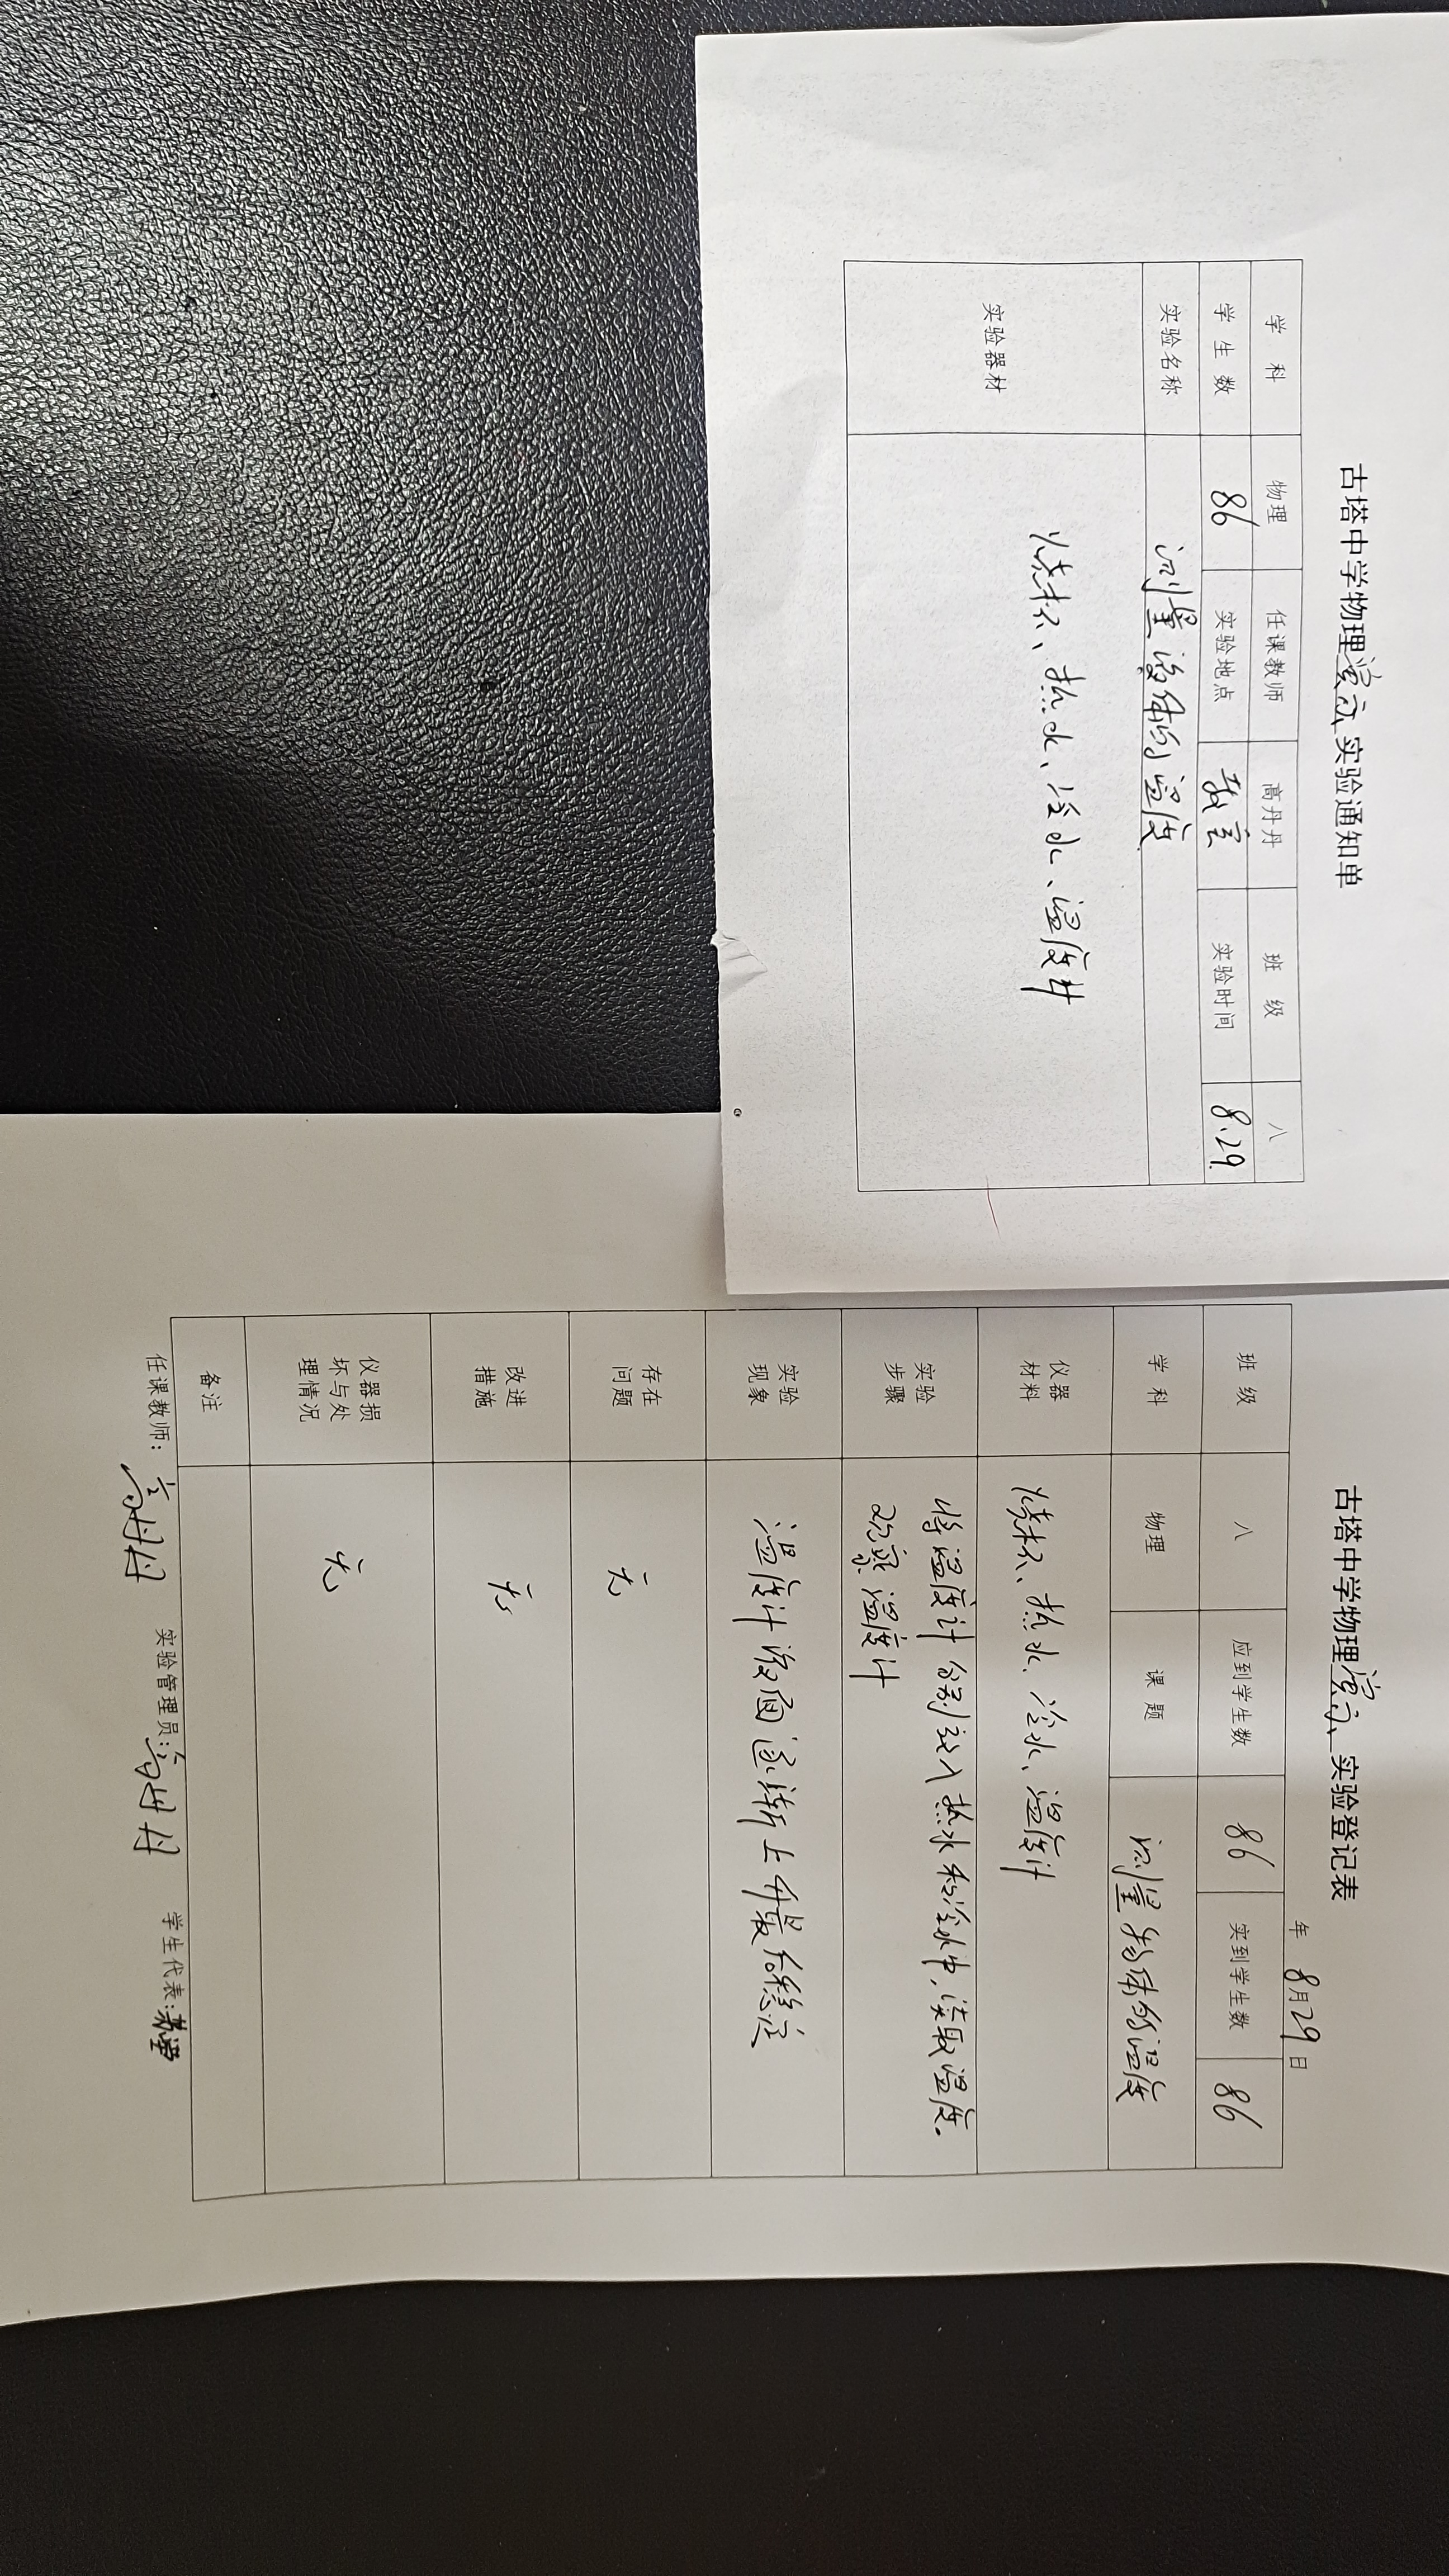 古塔中学物理演示实验通知单
学 科 物理 任课教师 高丹丹 班 级 八
学 生 数 86 实验地点 教室 实验时间 8.29.
实验名称 测量液体的温度
实验器材 烧杯、热水、冷水、温度计
古塔中学物理演示实验登记表
年 8月29日
班 级 八 应到学生数 86 实到学生数 86
学 科 物理 课 题 测量物体的温度
仪器
材料 烧杯、热水、冷水、温度计
实验
步骤 将温度计分别放入热水和冷水中,读取温度.
观察温度计
实验
现象 温度计液面逐渐上升最后稳定
存在
问题 无
改进
措施 无
仪器损
坏与处
理情况 无
备注
任课教师: 高丹丹 实验管理员: 高丹丹 学生代表: